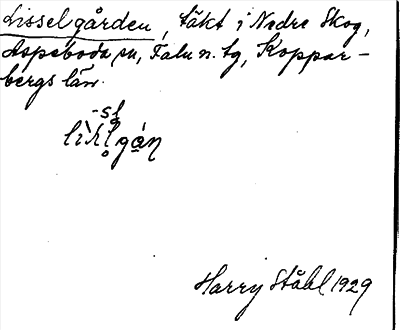 Lisselgården, täkt i Nedre Skog,
Aspeboda sn, Falu n. tg, Koppar-
bergs län.
-sl
Harry Ståhl 1929